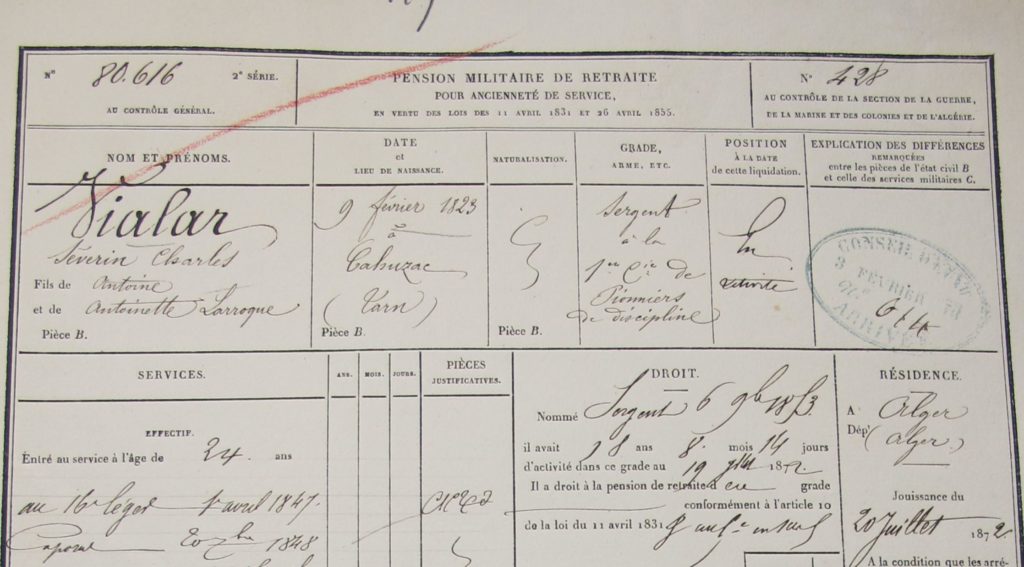 N° 80.616 2e SÉRIE.
AU CONTRÔLE GÉNÉRAL.
PENSION MILITAIRE DE RETRAITE
POUR ANCIENNETÉ DE SERVICE,
EN VERTU DES LOIS DES 11 AVRIL 1831 ET 26 AVRIL 1855.
N° 428
AU CONTRÔLE DE LA SECTION DE LA GUERRE,
DE LA MARINE ET DES COLONIES ET DE L'ALGÉRIE.
NOM ET PRÉNOMS.
Vialar
Séverin Charles
Fils de Antoine
et de Antoinette Larroque
Pièce B.
DATE
et
LIEU DE NAISSANCE.
9 février 1823
à
Cahuzac
(Tarn)
Pièce B.
NATURALISATION.
Pièce B.
GRADE,
ARME, ETC.
Sergent
à la
1re Cie de
Pionniers
de discipline
POSITION
À LA DATE
de cette liquidation.
En
activité
EXPLICATION DES DIFFÉRENCES
REMARQUÉES
entre les pièces de l'état civil B
et celle des services militaires C.
CONSEIL D'ÉTAT
3 FÉVRIER
SERVICES.
ANS. MOIS. JOURS.
PIÈCES
JUSTIFICATIVES.
EFFECTIF.
Entré au service à l'âge de 24 ans
au 16e léger 1er avril 1847
Caporal 20 Xbre 1848
DROIT.
Nommé Sergent 6 9bre 1853
il avait 18 ans 8 mois 14 jours
d'activité dans ce grade au 19 1872
Il a droit à la pension de retraite grade
conformément à l'article 10
de la loi du 11 avril 1831
RÉSIDENCE.
A Alger
Dépt (Alger)
Jouissance du
20 Juillet 1872.
A la condition que les arré-